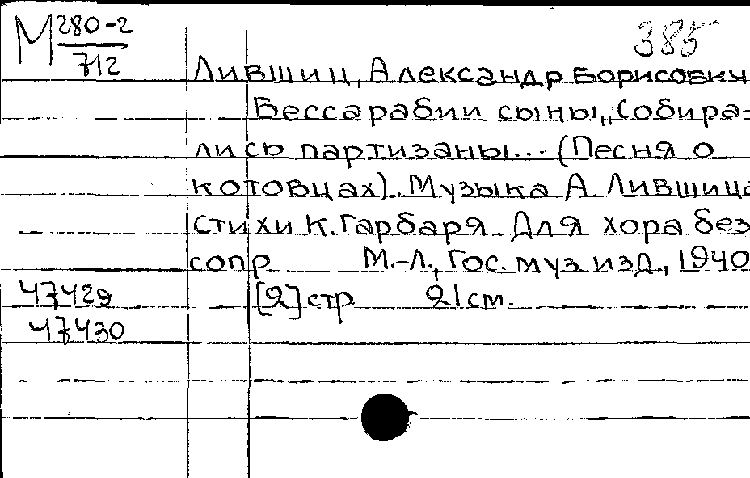 М 280-2
712
385
Лившиц, Александр Борисович
Бессарабии сыны, "Собира-
лись партизаны... (Песня о
котовцах). Музыка А Лившица
Стихи К. Гарбаря. Для хора без
сопр М.-Л., Гос. муз изд., 1940
[2] стр 21 см.
47429
47430